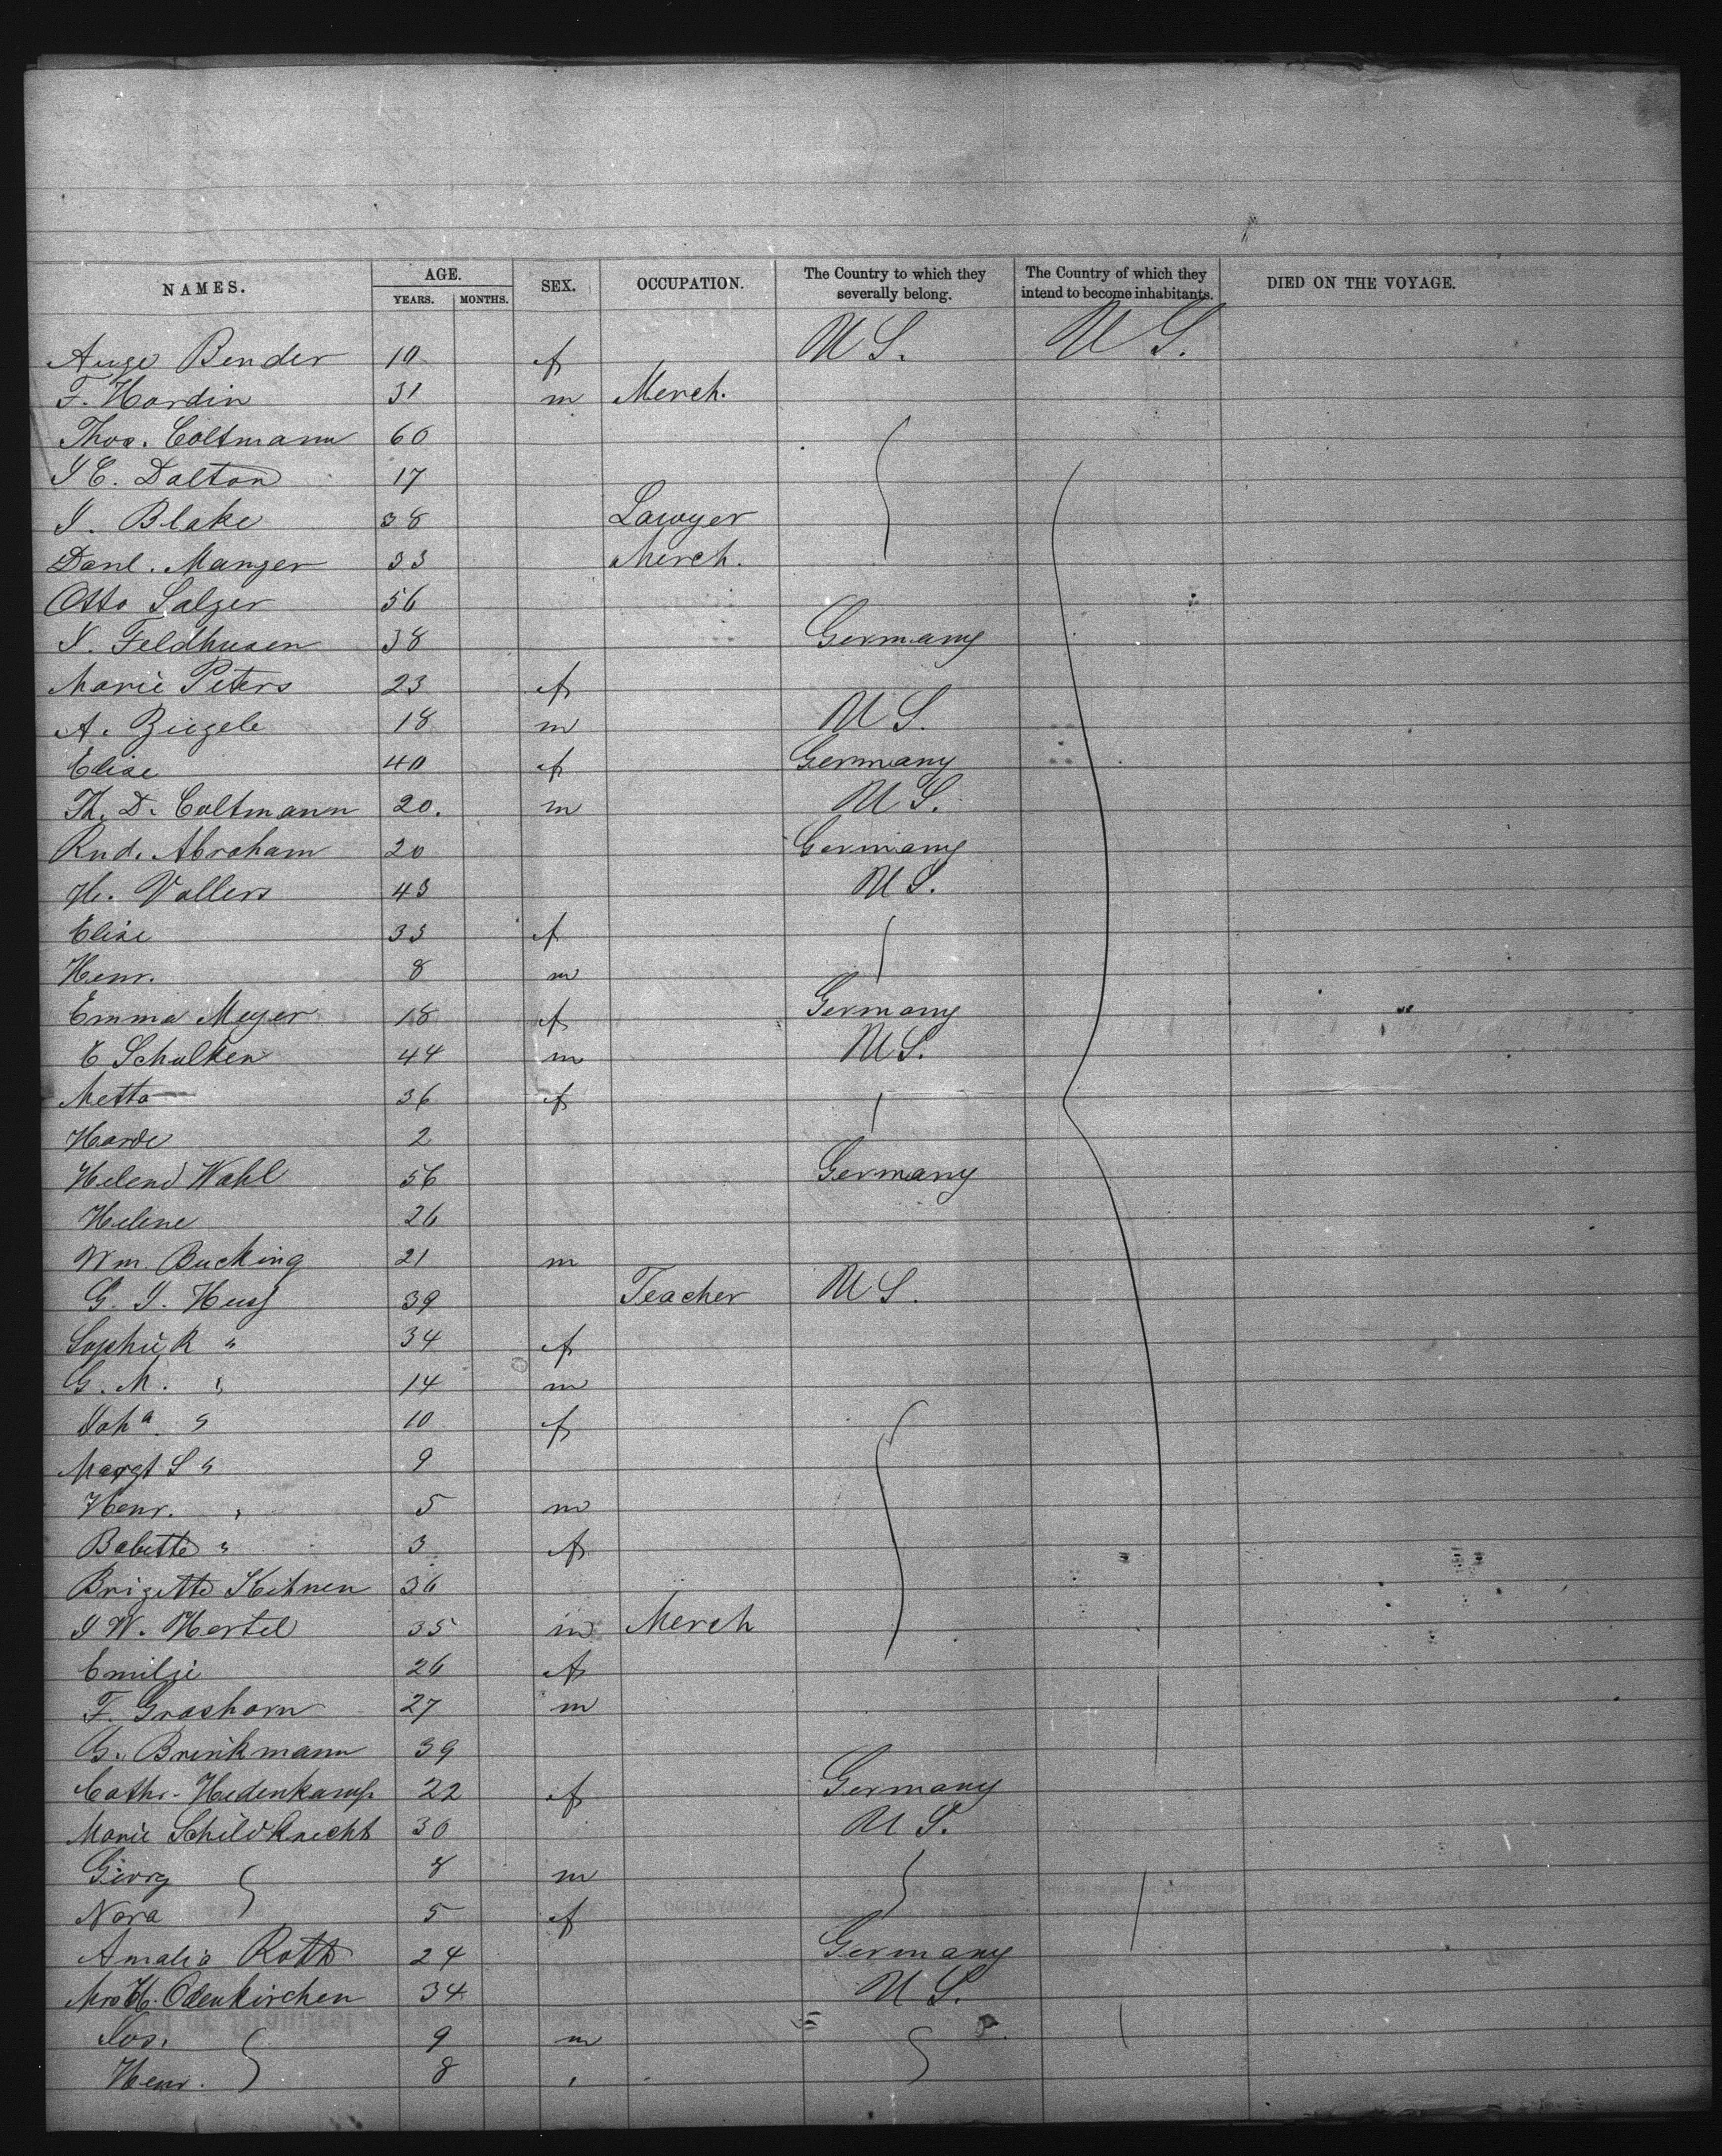 NAMES. AGE. YEARS. MONTHS. SEX. OCCUPATION. The Country to which they severally belong. The Country of which they intend to become inhabitants. DIED ON THE VOYAGE.
Auge Bender 10 f U S. U S.
F. Hardin 31 m Merch.
Thos. Coltmann 60
J C. Dalton 17
J. Blake 38 Lawyer
Danl. Manger 33 Merch.
Otto Salzer 56
J. Feldhusen 38 Germany
Marie Peters 23 f
A. Ziegele 18 m U S.
Elise 40 f Germany
Th. D. Coltmann 20. m U S.
Rud. Abraham 20 Germany
H. Vollers 43 U S.
Elise 33 f
Henr. 8 m
Emma Meyer 18 f Germany
C Schulken 44 m U S.
Metta 36 f
2
Helene Wahl 56 Germany
Helene 26
Wm. Bucking 21 m
G. J. Huss 39 Teacher U S.
Sophie R " 34 f
G. M. " 14 m
Joha. " 10 f
Margt S " 9
Henr. " 5 m
Babette " 3 f
Brigitte 36
J W. Hertel 35 m Merch
Emilie 26 f
F. Grashorn 27 m
G. Brinkmann 39
Cathr. Hedenkamp 22 f Germany
Marie Schildknecht 30 U S.
Georg 8 m
Nora 5 f
Amalia Roth 24 Germany
Mrs H. Odenkirchen 34 U S.
Jos. 9 m
Henr. 8 "